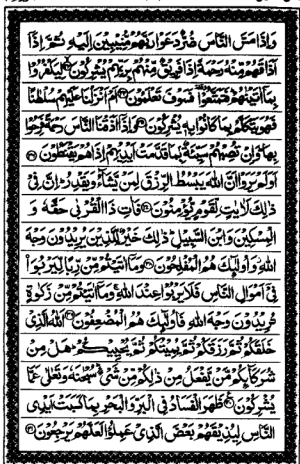 وَاِذَا مَسَّ النَّاسَ ضُرٌّ دَعَوْا رَبَّهُمْ مُّنِيْبِيْنَ اِلَيْهِ ثُمَّ اِذَاۤ
اَذَاقَهُمْ مِّنْهُ رَحْمَةً اِذَا فَرِيْقٌ مِّنْهُمْ بِرَبِّهِمْ يُشْرِكُوْنَ ۙ۳۳ لِيَكْفُرُوْا
بِمَاۤ اٰتَيْنٰهُمْ ؕ فَتَمَتَّعُوْا ٝ فَسَوْفَ تَعْلَمُوْنَ ۳۴ اَمْ اَنْزَلْنَا عَلَيْهِمْ سُلْطٰنًا
فَهُوَ يَتَكَلَّمُ بِمَا كَانُوْا بِهٖ يُشْرِكُوْنَ ۳۵ وَاِذَاۤ اَذَقْنَا النَّاسَ رَحْمَةً فَرِحُوْا
بِهَا ؕ وَاِنْ تُصِبْهُمْ سَيِّئَةٌۢ بِمَا قَدَّمَتْ اَيْدِيْهِمْ اِذَا هُمْ يَقْنَطُوْنَ ۳۶
اَوَلَمْ يَرَوْا اَنَّ اللّٰهَ يَبْسُطُ الرِّزْقَ لِمَنْ يَّشَآءُ وَيَقْدِرُ ؕ اِنَّ فِيْ
ذٰلِكَ لَاٰيٰتٍ لِّقَوْمٍ يُّؤْمِنُوْنَ ۳۷ فَاٰتِ ذَا الْقُرْبٰى حَقَّهٗ وَ
الْمِسْكِيْنَ وَابْنَ السَّبِيْلِ ؕ ذٰلِكَ خَيْرٌ لِّلَّذِيْنَ يُرِيْدُوْنَ وَجْهَ
اللّٰهِ ؗ وَاُولٰٓئِكَ هُمُ الْمُفْلِحُوْنَ ۳۸ وَمَاۤ اٰتَيْتُمْ مِّنْ رِّبًا لِّيَرْبُوَا۠
فِيْۤ اَمْوَالِ النَّاسِ فَلَا يَرْبُوْا عِنْدَ اللّٰهِ ۚ وَمَاۤ اٰتَيْتُمْ مِّنْ زَكٰوةٍ
تُرِيْدُوْنَ وَجْهَ اللّٰهِ فَاُولٰٓئِكَ هُمُ الْمُضْعِفُوْنَ ۳۹ اَللّٰهُ الَّذِيْ
خَلَقَكُمْ ثُمَّ رَزَقَكُمْ ثُمَّ يُمِيْتُكُمْ ثُمَّ يُحْيِيْكُمْ ؕ هَلْ مِنْ
شُرَكَآئِكُمْ مَّنْ يَّفْعَلُ مِنْ ذٰلِكُمْ مِّنْ شَيْءٍ ؕ سُبْحٰنَهٗ وَتَعٰلٰى عَمَّا
يُشْرِكُوْنَ ۴۰ ظَهَرَ الْفَسَادُ فِي الْبَرِّ وَالْبَحْرِ بِمَا كَسَبَتْ اَيْدِي
النَّاسِ لِيُذِيْقَهُمْ بَعْضَ الَّذِيْ عَمِلُوْا لَعَلَّهُمْ يَرْجِعُوْنَ ۴۱